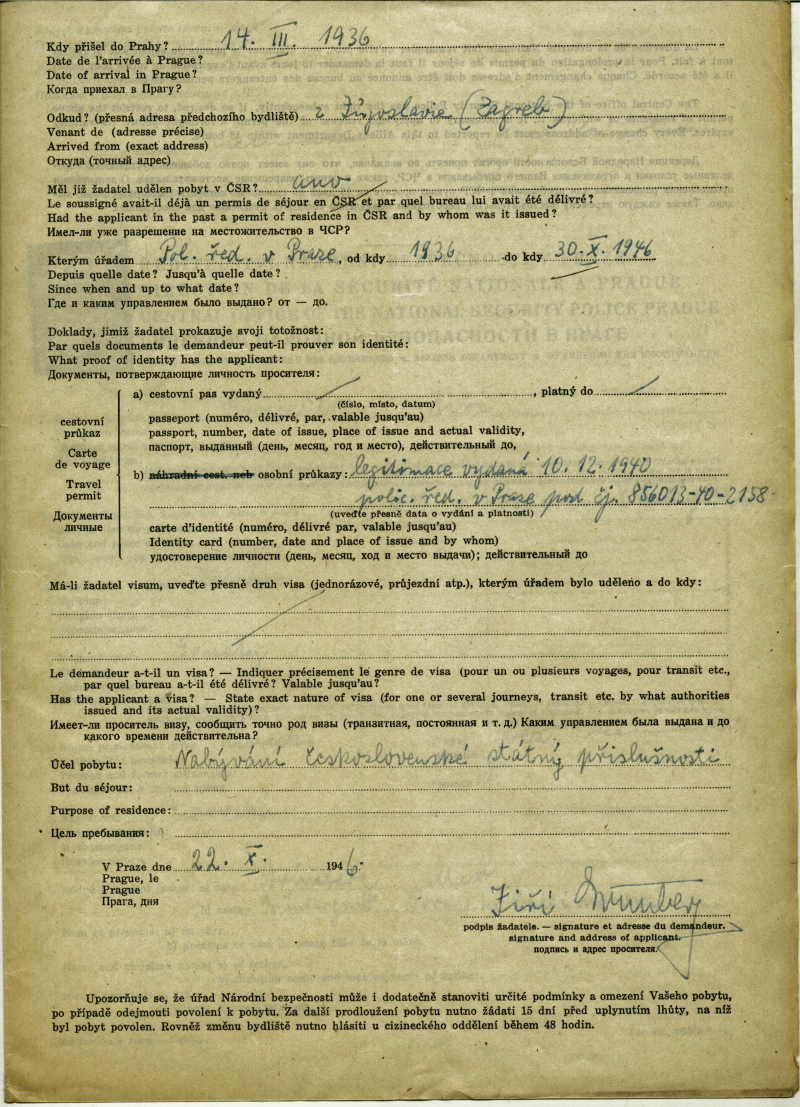 Kdy přišel do Prahy? 14. III. 1936
Date de l'arrivée à Prague?
Date of arrival in Prague?
Когда приехал в Прагу?
Odkud? (přesná adresa předchozího bydliště) z Jugoslavie (Zagreb)
Venant de (adresse précise)
Arrived from (exact address)
Откуда (точный адрес)
Měl již žadatel udělen pobyt v ČSR? ano
Le soussigné avait-il déjà un permis de séjour en ČSR et par quel bureau lui avait été délivré?
Had the applicant in the past a permit of residence in ČSR and by whom was it issued?
Имел-ли уже разрешение на местожительство в ЧСР?
Kterým úřadem Pol. řed. v Praze, od kdy 1936 do kdy 30. X. 1946
Depuis quelle date? Jusqu'à quelle date?
Since when and up to what date?
Где и каким управлением было выдано? от — до.
Doklady, jimiž žadatel prokazuje svoji totožnost:
Par quels documents le demandeur peut-il prouver son identité:
What proof of identity has the applicant:
Документы, потверждающие личность просителя:
cestovní
průkaz
Carte
de voyage
Travel
permit
Документы
личные
a) cestovní pas vydaný , platný do
(číslo, místo, datum)
passeport (numéro, délivré, par, valable jusqu'au)
passport, number, date of issue, place of issue and actual validity,
паспорт, выданный (день, месяц, год и место), действительный до,
b) náhradní cest. neb osobní průkazy: legitimace vydaná 10. 12. 1940
polic. řed. v Praze pod čj. 856013-40-2158
(uveďte přesně data o vydání a platnosti)
carte d'identité (numéro, délivré par, valable jusqu'au)
Identity card (number, date and place of issue and by whom)
удостоверение личности (день, месяц, ход и место выдачи); действительный до
Má-li žadatel visum, uveďte přesně druh visa (jednorázové, průjezdní atp.), kterým úřadem bylo uděleno a do kdy:
Le demandeur a-t-il un visa? — Indiquer précisement le genre de visa (pour un ou plusieurs voyages, pour transit etc.,
par quel bureau a-t-il été délivré? Valable jusqu'au?
Has the applicant a visa? — State exact nature of visa (for one or several journeys, transit etc. by what authorities
issued and its actual validity)?
Имеет-ли проситель визу, сообщить точно род визы (транзитная, постоянная и т. д.) Каким управлением была выдана и до
какого времени действительна?
Účel pobytu: Nabývání československé státný příslušnosti
But du séjour:
Purpose of residence:
Цель пребывания:
V Praze dne 22. X. 1946.
Prague, le
Prague
Прага, дня
Jiří
podpis žadatele. — signature et adresse du demandeur.
signature and address of applicant.
подпись и адрес просителя.
Upozorňuje se, že úřad Národní bezpečnosti může i dodatečně stanoviti určité podmínky a omezení Vašeho pobytu,
po případě odejmouti povolení k pobytu. Za další prodloužení pobytu nutno žádati 15 dní před uplynutím lhůty, na níž
byl pobyt povolen. Rovněž změnu bydliště nutno hlásiti u cizineckého oddělení během 48 hodin.